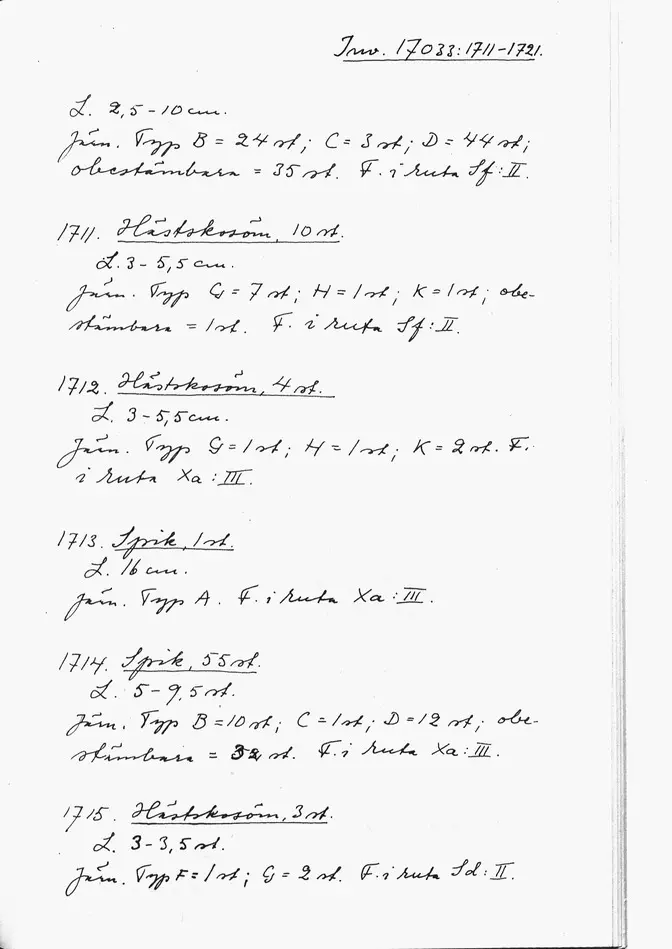 Inv. 17033:1711-1721.
L. 2,5-10 cm.
Järn. Typ B = 24 st; C = 3 st; D = 44 st;
obestämbara = 35 st. F. i ruta Sf:II.
1711. Hästskosöm, 10 st.
L. 3-5,5 cm.
Järn. Typ G = 7 st; H = 1 st; K = 1 st; obe-
stämbara = 1 st. F. i ruta Sf:II.
1712. Hästskosöm, 4 st.
L. 3-5,5 cm.
Järn. Typ G = 1 st; H = 1 st; K = 2 st. F.
i ruta Xa:III.
1713. Spik, 1 st.
L. 16 cm.
Järn. Typ A. F. i ruta Xa:III.
1714. Spik, 55 st.
L. 5-9,5 st.
Järn. Typ B = 10 st; C = 1 st; D = 12 st; obe-
stämbara = 32 st. F. i ruta Xa:III.
1715. Hästskosöm, 3 st.
L. 3-3,5 st.
Järn. Typ F = 1 st; G = 2 st. F. i ruta Sd:II.